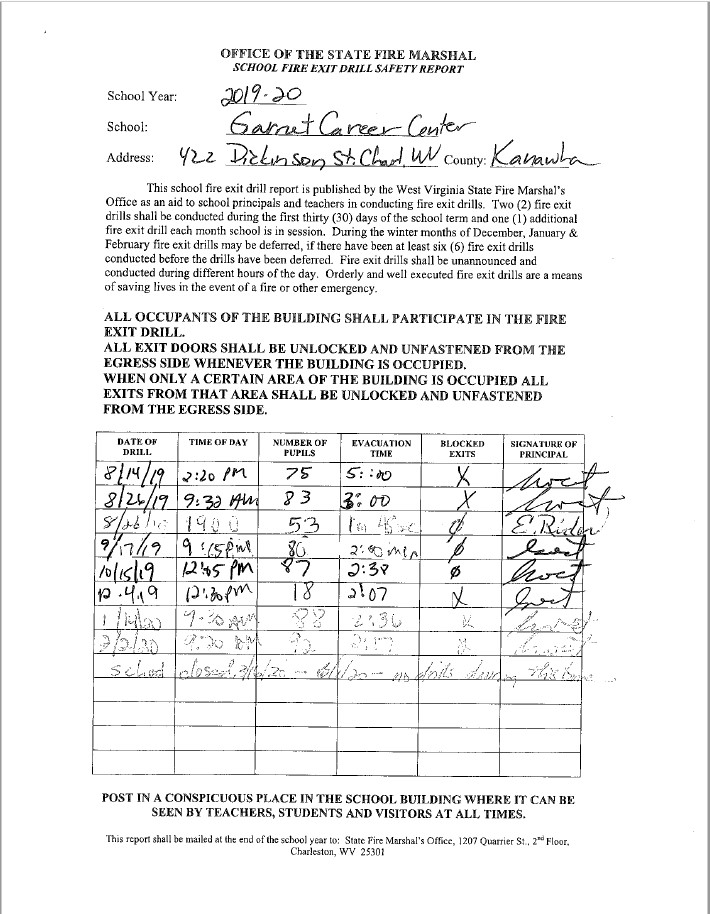 OFFICE OF THE STATE FIRE MARSHAL
SCHOOL FIRE EXIT DRILL SAFETY REPORT
School Year: 2019-20
School: Garnet Career Center
Address: 422 Dickinson St. Chas, WV County: Kanawha
This school fire exit drill report is published by the West Virginia State Fire Marshal's
Office as an aid to school principals and teachers in conducting fire exit drills. Two (2) fire exit
drills shall be conducted during the first thirty (30) days of the school term and one (1) additional
fire exit drill each month school is in session. During the winter months of December, January &
February fire exit drills may be deferred, if there have been at least six (6) fire exit drills
conducted before the drills have been deferred. Fire exit drills shall be unannounced and
conducted during different hours of the day. Orderly and well executed fire exit drills are a means
of saving lives in the event of a fire or other emergency.
ALL OCCUPANTS OF THE BUILDING SHALL PARTICIPATE IN THE FIRE
EXIT DRILL.
ALL EXIT DOORS SHALL BE UNLOCKED AND UNFASTENED FROM THE
EGRESS SIDE WHENEVER THE BUILDING IS OCCUPIED.
WHEN ONLY A CERTAIN AREA OF THE BUILDING IS OCCUPIED ALL
EXITS FROM THAT AREA SHALL BE UNLOCKED AND UNFASTENED
FROM THE EGRESS SIDE.
DATE OF DRILL TIME OF DAY NUMBER OF PUPILS EVACUATION TIME BLOCKED EXITS SIGNATURE OF PRINCIPAL
8/14/19 2:20 PM 75 5:00 X
8/26/19 9:32 AM 83 3:00 X
1900 53 ø E. Rider
9/17/19 9:15 2:00 min ø
10/15/19 12:05 PM 87 2:38 ø
12.4.19 12:30 PM 18 2:07 X
9:30 AM 88 2:36 X
2/2/20 9:20 AM 92
School closed no drills during this time
POST IN A CONSPICUOUS PLACE IN THE SCHOOL BUILDING WHERE IT CAN BE
SEEN BY TEACHERS, STUDENTS AND VISITORS AT ALL TIMES.
This report shall be mailed at the end of the school year to: State Fire Marshal's Office, 1207 Quarrier St., 2nd Floor,
Charleston, WV 25301